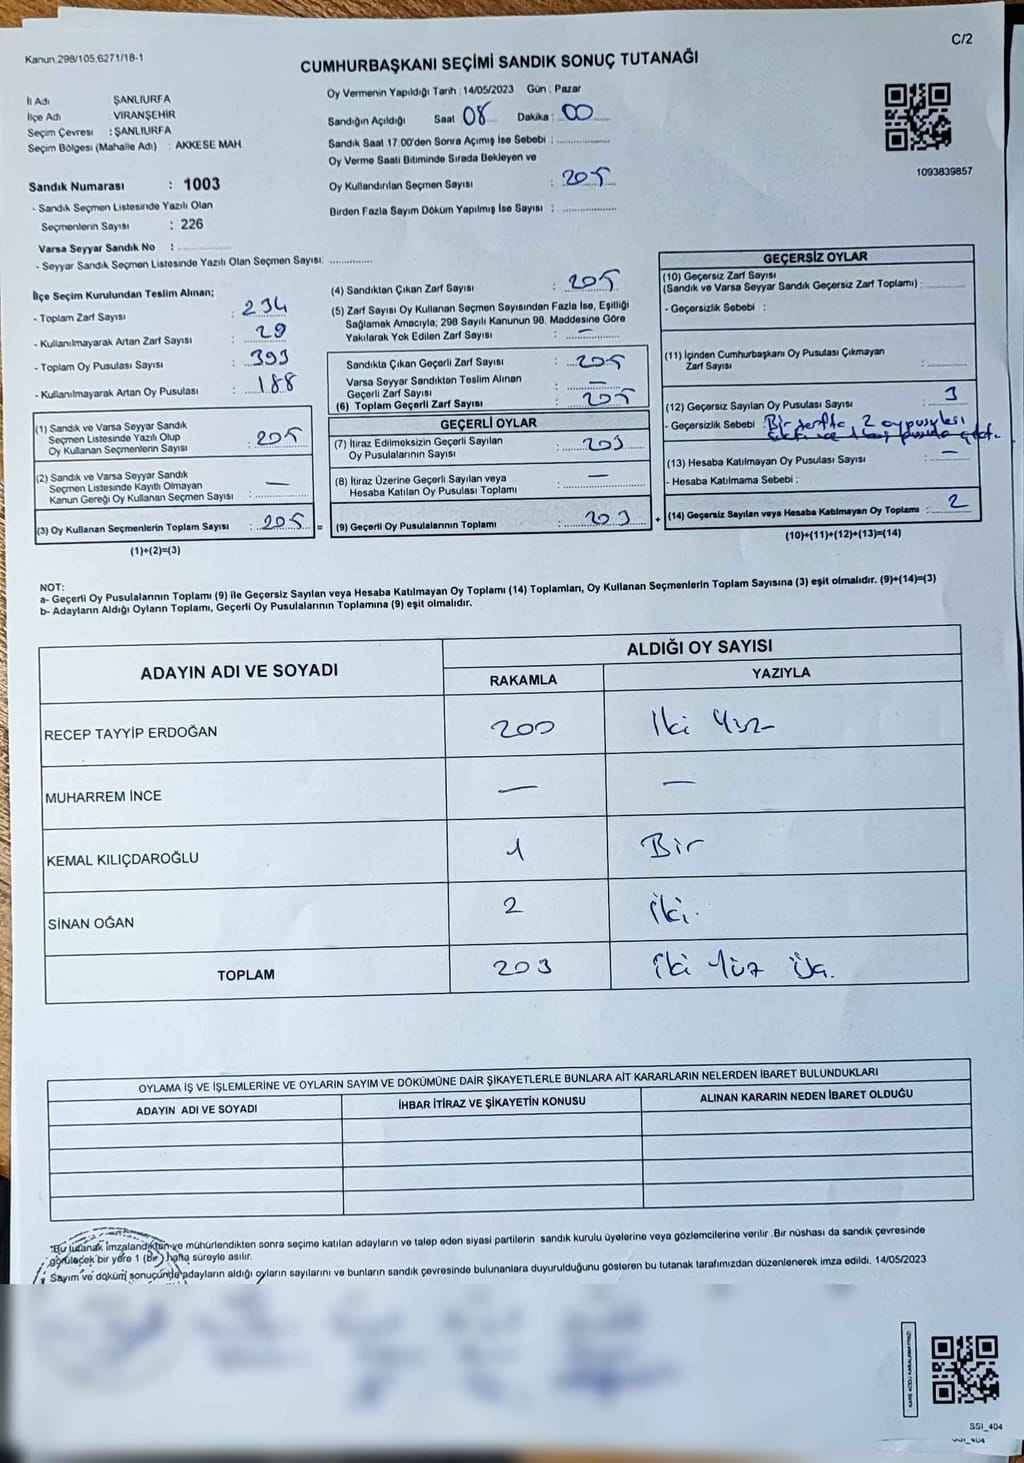 C/2
Kanun.298/105,6271/18-1
CUMHURBAŞKANI SEÇİMİ SANDIK SONUÇ TUTANAĞI
İl Adı ŞANLIURFA
İlçe Adı VİRANŞEHİR
Seçim Çevresi : ŞANLIURFA
Seçim Bölgesi (Mahalle Adı) : AKKESE MAH.
Sandık Numarası : 1003
- Sandık Seçmen Listesinde Yazılı Olan
Seçmenlerin Sayısı : 226
Varsa Seyyar Sandık No :
- Seyyar Sandık Seçmen Listesinde Yazılı Olan Seçmen Sayısı:
Oy Vermenin Yapıldığı Tarih : 14/05/2023 Gün : Pazar
Sandığın Açıldığı Saat 08 Dakika : 00
Sandık Saat 17.00'den Sonra Açımış İse Sebebi :
Oy Verme Saati Bitiminde Sırada Bekleyen ve
Oy Kullandırılan Seçmen Sayısı : 205
Birden Fazla Sayım Döküm Yapılmış İse Sayısı :
1093839857
İlçe Seçim Kurulundan Teslim Alınan;
- Toplam Zarf Sayısı : 234
- Kullanılmayarak Artan Zarf Sayısı : 29
- Toplam Oy Pusulası Sayısı : 393
- Kullanılmayarak Artan Oy Pusulası : 188
(1) Sandık ve Varsa Seyyar Sandık
Seçmen Listesinde Yazılı Olup
Oy Kullanan Seçmenlerin Sayısı : 205
(2) Sandık ve Varsa Seyyar Sandık
Seçmen Listesinde Kayıtlı Olmayan
Kanun Gereği Oy Kullanan Seçmen Sayısı : —
(3) Oy Kullanan Seçmenlerin Toplam Sayısı : 205 =
(1)+(2)=(3)
(4) Sandıktan Çıkan Zarf Sayısı : 205
(5) Zarf Sayısı Oy Kullanan Seçmen Sayısından Fazla İse, Eşitliği
Sağlamak Amacıyla; 298 Sayılı Kanunun 98. Maddesine Göre
Yakılarak Yok Edilen Zarf Sayısı : —
Sandıkta Çıkan Geçerli Zarf Sayısı : 205
Varsa Seyyar Sandıktan Teslim Alınan
Geçerli Zarf Sayısı : —
(6) Toplam Geçerli Zarf Sayısı : 205
GEÇERLİ OYLAR
(7) İtiraz Edilmeksizin Geçerli Sayılan
Oy Pusulalarının Sayısı : 203
(8) İtiraz Üzerine Geçerli Sayılan veya
Hesaba Katılan Oy Pusulası Toplamı : —
(9) Geçerli Oy Pusulalarının Toplamı : 203 +
GEÇERSİZ OYLAR
(10) Geçersiz Zarf Sayısı
(Sandık ve Varsa Seyyar Sandık Geçersiz Zarf Toplamı) :
- Geçersizlik Sebebi :
(11) İçinden Cumhurbaşkanı Oy Pusulası Çıkmayan
Zarf Sayısı :
(12) Geçersiz Sayılan Oy Pusulası Sayısı : 3
- Geçersizlik Sebebi : Bir zarfta, 2 oy pusulası
(13) Hesaba Katılmayan Oy Pusulası Sayısı : —
- Hesaba Katılmama Sebebi :
(14) Geçersiz Sayılan veya Hesaba Katılmayan Oy Toplamı : 2
(10)+(11)+(12)+(13)=(14)
NOT:
a- Geçerli Oy Pusulalarının Toplamı (9) ile Geçersiz Sayılan veya Hesaba Katılmayan Oy Toplamı (14) Toplamları, Oy Kullanan Seçmenlerin Toplam Sayısına (3) eşit olmalıdır. (9)+(14)=(3)
b- Adayların Aldığı Oyların Toplamı, Geçerli Oy Pusulalarının Toplamına (9) eşit olmalıdır.
ADAYIN ADI VE SOYADI ALDIĞI OY SAYISI
RAKAMLA YAZIYLA
RECEP TAYYİP ERDOĞAN 200 İki Yüz
MUHARREM İNCE — —
KEMAL KILIÇDAROĞLU 1 Bir
SİNAN OĞAN 2 İki.
TOPLAM 203 İki Yüz Üç.
OYLAMA İŞ VE İŞLEMLERİNE VE OYLARIN SAYIM VE DÖKÜMÜNE DAİR ŞİKAYETLERLE BUNLARA AİT KARARLARIN NELERDEN İBARET BULUNDUKLARI
ADAYIN ADI VE SOYADI İHBAR İTİRAZ VE ŞİKAYETİN KONUSU ALINAN KARARIN NEDEN İBARET OLDUĞU
"Bu tutanak imzalandıktan ve mühürlendikten sonra seçime katılan adayların ve talep eden siyasi partilerin sandık kurulu üyelerine veya gözlemcilerine verilir .Bir nüshası da sandık çevresinde
görülecek bir yere 1 (Bir) hafta süreyle asılır.
Sayım ve döküm sonuçunda adayların aldığı oyların sayılarını ve bunların sandık çevresinde bulunanlara duyurulduğunu gösteren bu tutanak tarafımızdan düzenlenerek imza edildi. 14/05/2023
SSI_404